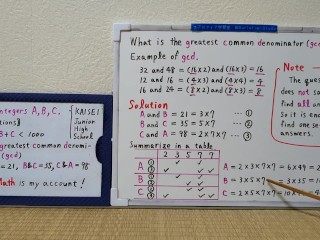 integers A, B, C.
B+C < 1000
greatest common denomina-
(gcd)
= 21, B&C = 35, C&A = 98
Math is my account!
KAISEI
Junior
High
School
What is the greatest common denominator (gcd
Example of gcd.
32 and 48 = (16×2) and (16×3) = 16
12 and 16 = (4×3) and (4×4) = 4
16 and 24 = (8×2) and (8×3) = 8
Solution
A and B = 21 = 3×7 ··· ①
B and C = 35 = 5×7 ··· ②
C and A = 98 = 2×7×7 ··· ③
Summarize in a table
2 3 5 7 7
A ①
③
B ①
②
C ②
③
A = 2×3×7×7 = 6×49 = 2
B = 3×5×7 = 3×35 = 10
C = 2×5×7×7 = 10×
Note
The ques
does not s
find all an
So it is eno
find one se
answers.